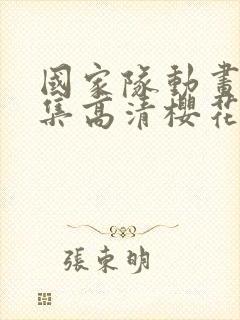 國家隊動畫
集高清櫻花
張東明